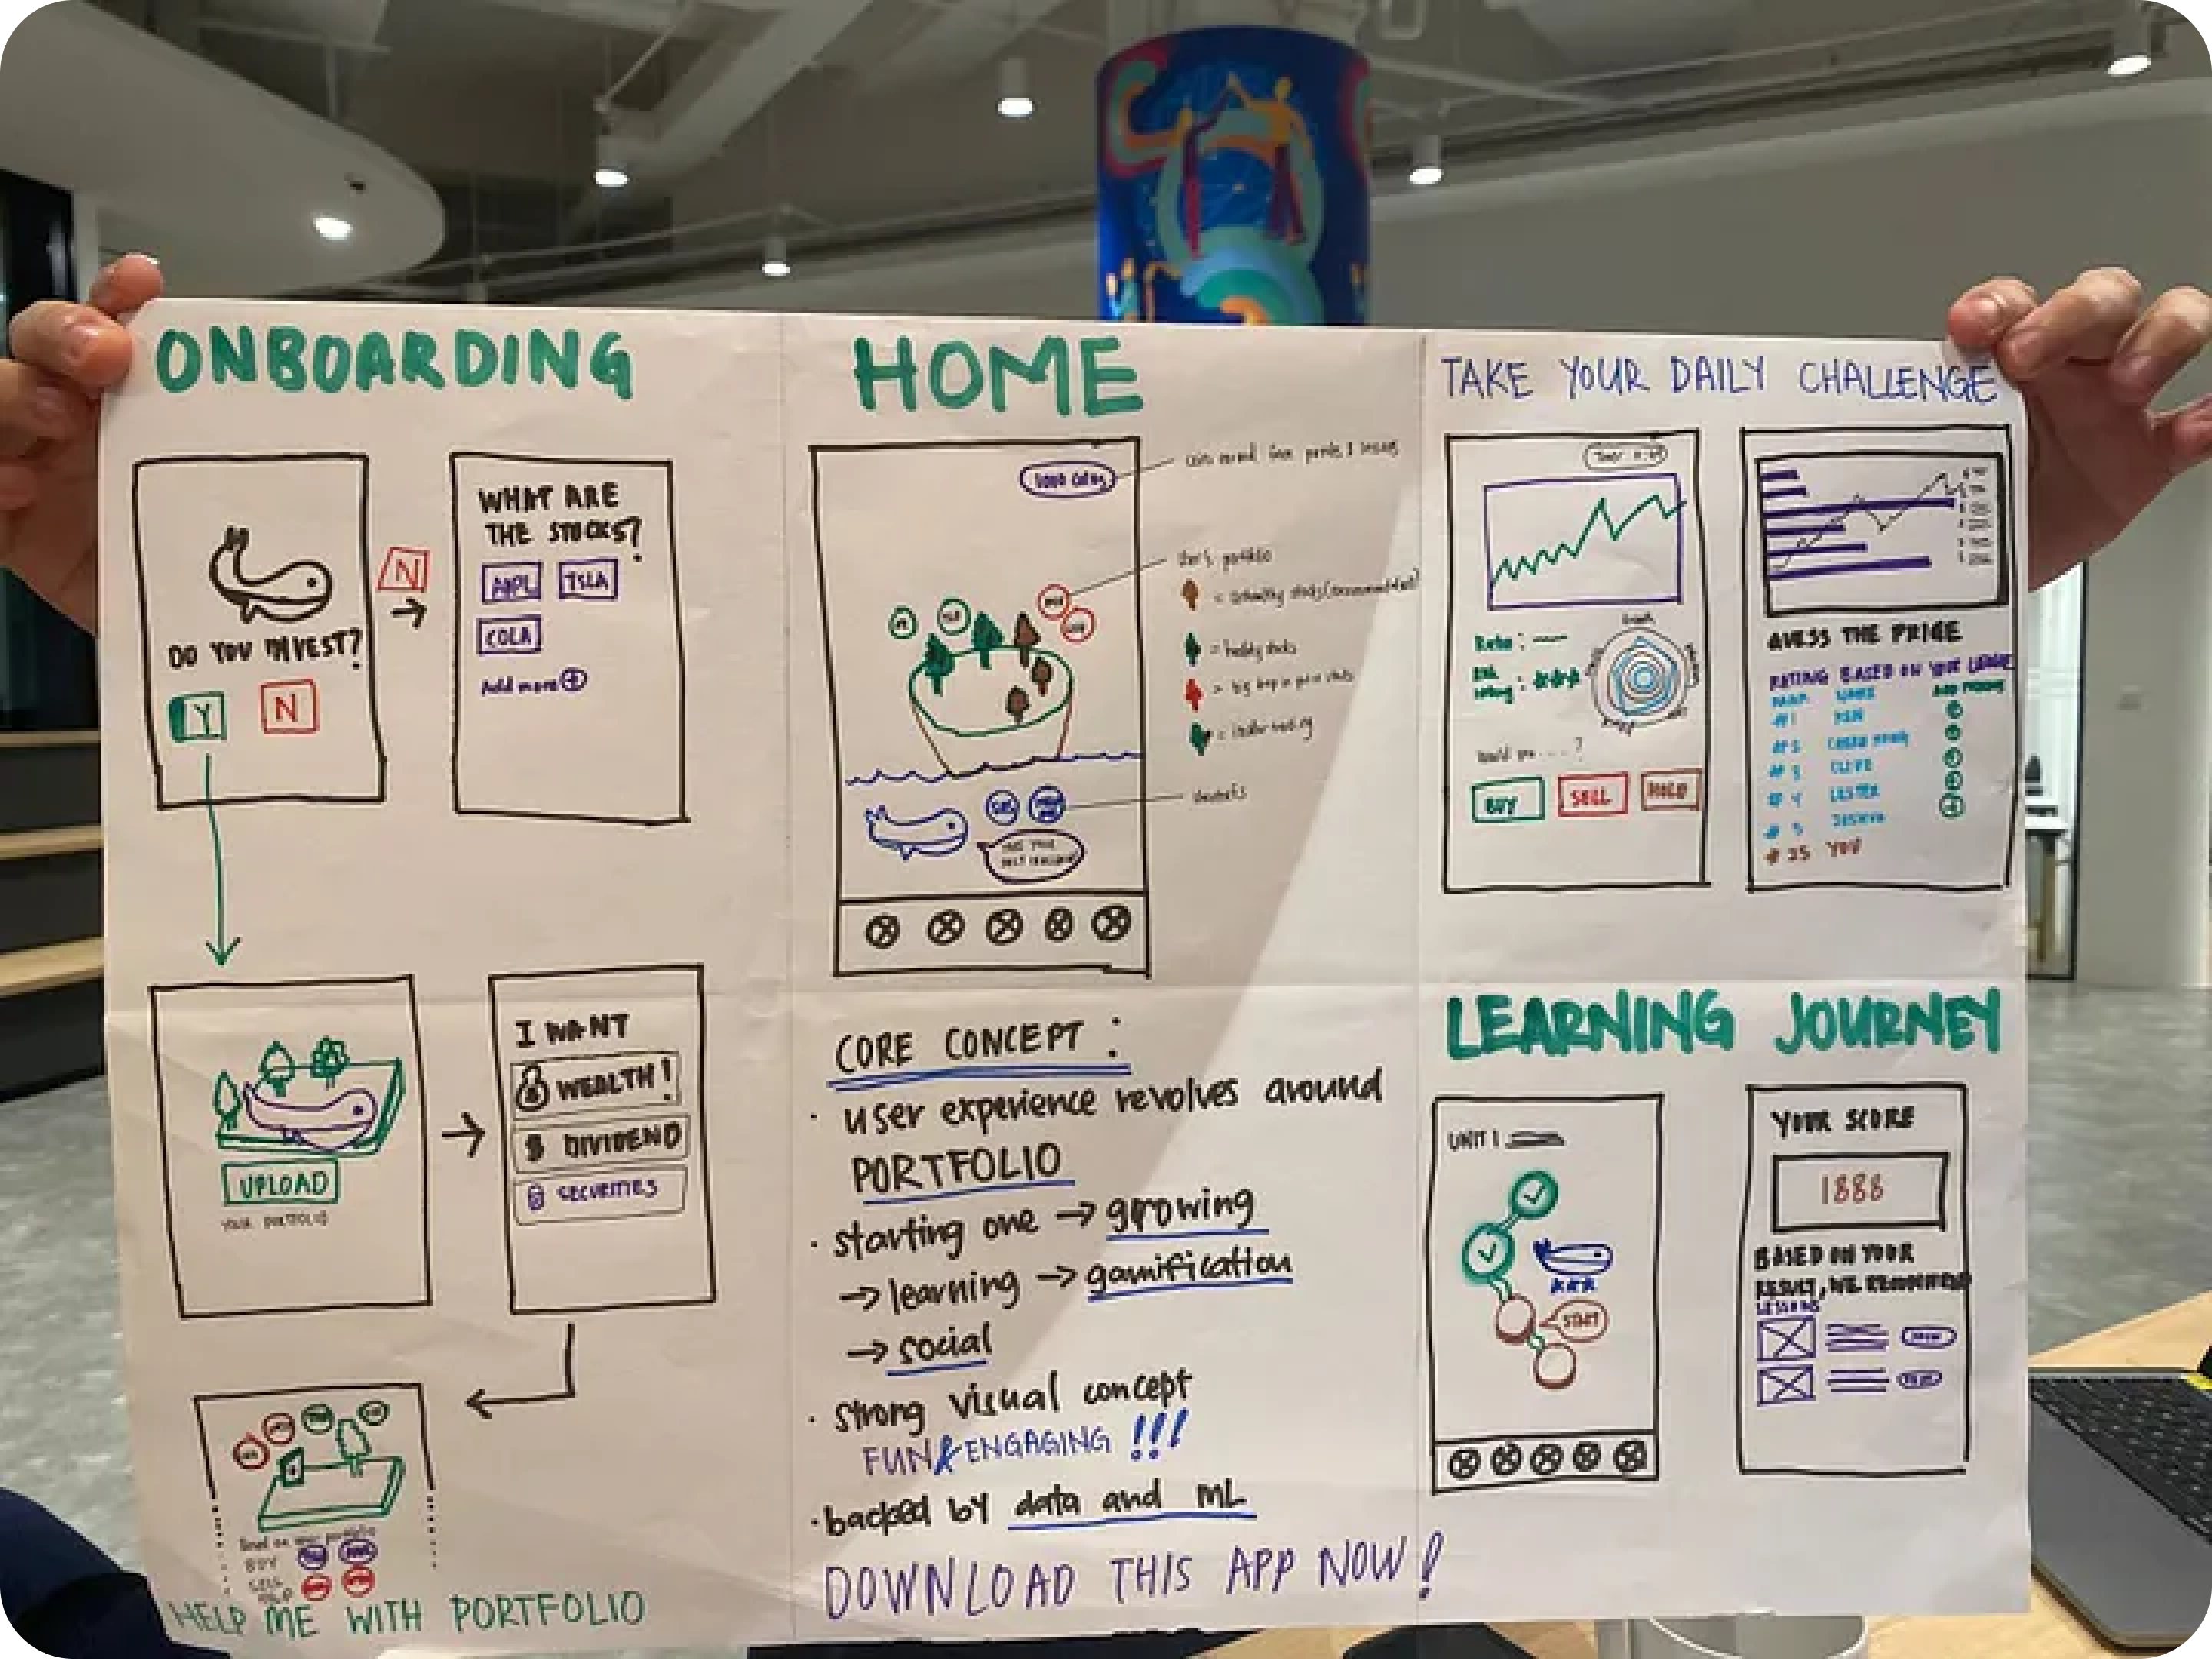 ONBOARDING
DO YOU INVEST?
Y
N
N
WHAT ARE
THE STOCKS?
AAPL
TSLA
COLA
Add more +
UPLOAD
YOUR PORTFOLIO
I WANT
WEALTH!
$ DIVIDEND
SECURITIES
Based on your portfolio
BUY
SELL
HELP ME WITH PORTFOLIO
HOME
User's portfolio
= healthy stocks
= big drop in price
CORE CONCEPT:
· user experience revolves around
PORTFOLIO
· starting one → growing
→ learning → gamification
→ social
· strong visual concept
FUN & ENGAGING !!!
· backed by data and ML
DOWNLOAD THIS APP NOW!
TAKE YOUR DAILY CHALLENGE
Would you....?
BUY
SELL
HOLD
GUESS THE PRICE
RATING BASED ON YOUR LEAGUE
NAME
#1
LESTER
JOSHUA
#35 YOU
LEARNING JOURNEY
UNIT 1
START
YOUR SCORE
1888
BASED ON YOUR
RESULT, WE RECOMMEND
LESSONS